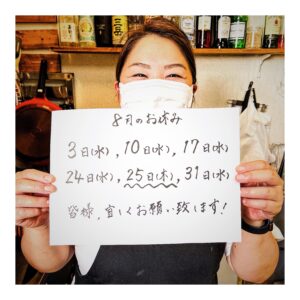 8月のお休み
3日(水)，10日(水)，17日(水)
24日(水)，25日(木)，31日(水)
皆様，宜しくお願い致します！